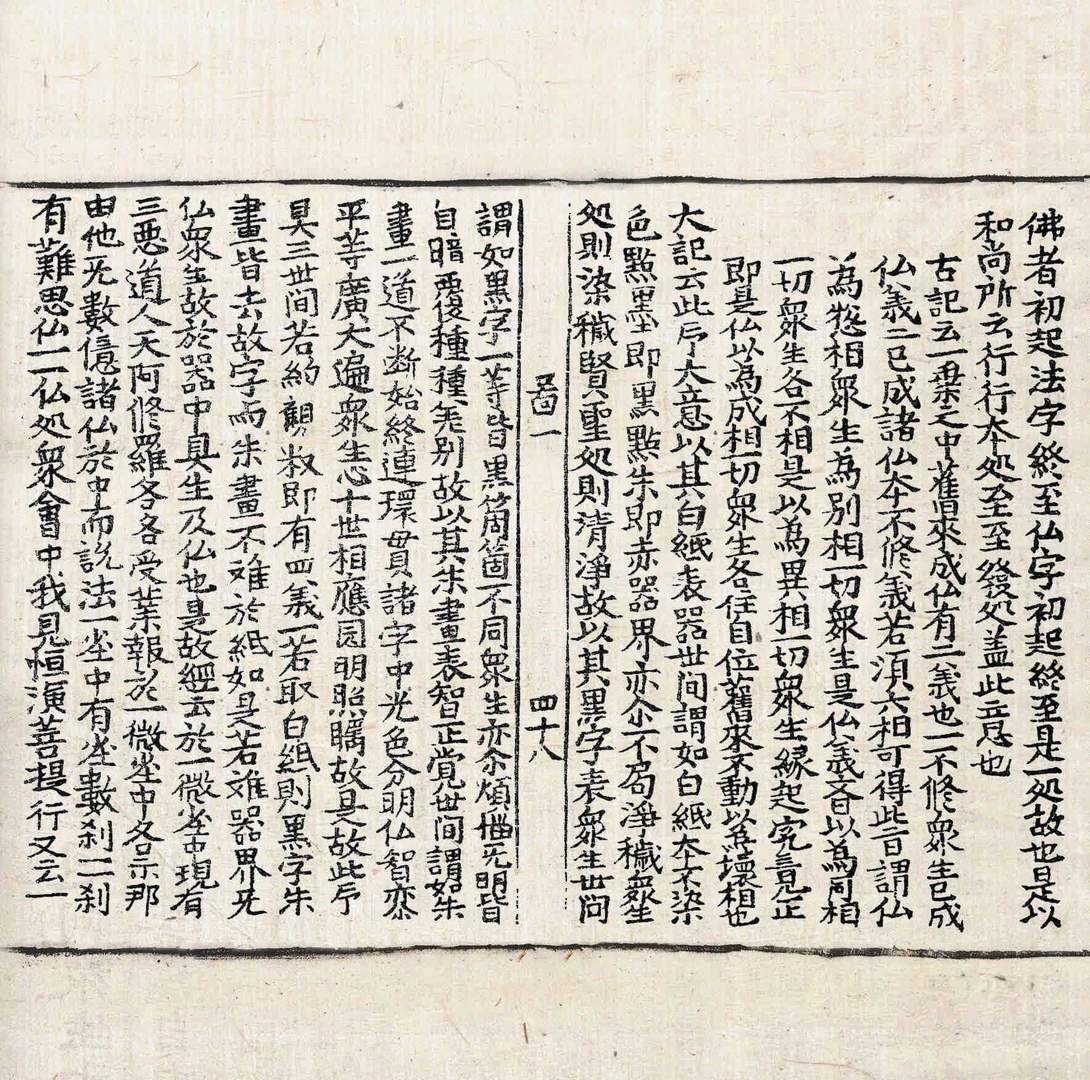 佛者初起法字終至仏字初起終至是一処故也是以
和尚所云行行本処至至發処盖此意也
古記云一乗之中舊來成仏有二義也一不修衆生已成
仏義二已成諸仏夲不修義若須六相可得此旨謂仏
為惣相衆生為別相一切衆生是仏義斉以為同相
一切衆生各不相是以為異相一切衆生緣起究竟正
即是仏以為成相一切衆生各住自位舊來不動以為壞相也
大記云此卬大意以其白紙表器世间謂如白紙夲不染
色㸃墨即黒㸃朱即赤器界亦尒不局淨穢衆生
処則染穢賢聖処則清淨故以其黒字表衆生世间
啚一 四十八
謂如黒字一等皆黒箇箇不同衆生亦尒煩惱无明皆
自暗覆種種差别故以其朱畫表智正覚世间謂如朱
畫一道不断始終連環貫諸字中光色分明仏智亦
平等廣大遍衆生心十世相應园明照矚故是故此卬
具三世间若約觀釈即有四義一若取白紙則黒字朱
畫皆去故字而朱畫不难於紙如是若难器界无
仏衆生故於器中具生及仏也是故經云於一微尘中現有
三惡道人天阿修羅各各受業報於一微尘中各示那
由他无數億諸仏於中而説法一尘中有尘數刹一一刹
有難思仏一一仏処衆會中我見恒演菩提行又云一